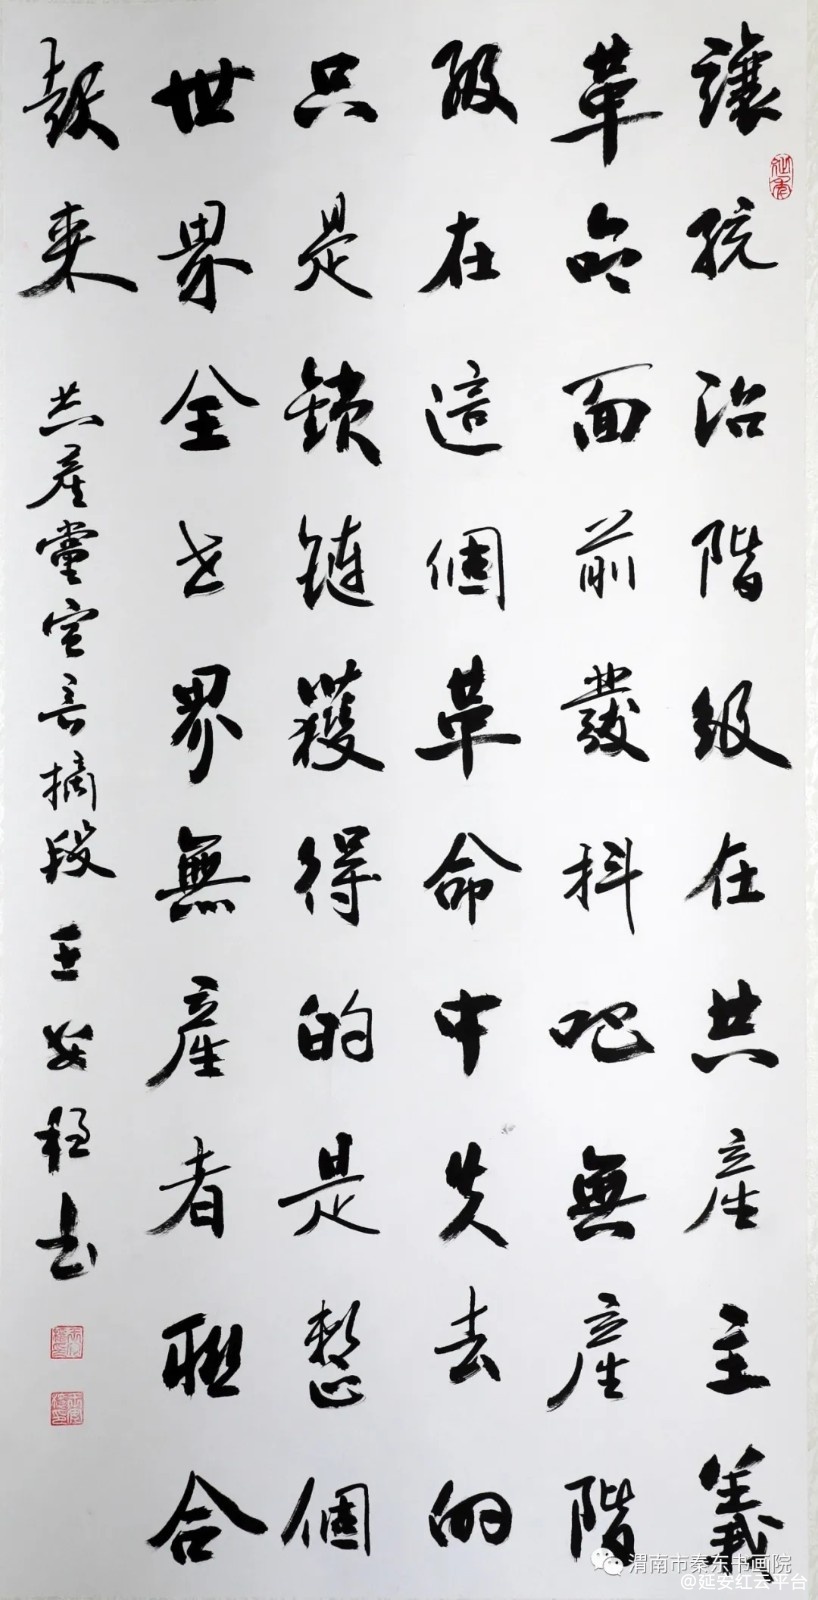 讓統治階級在共產主義
革命面前發抖吧無產階
級在這個革命中失去的
只是鎖链獲得的是整個
世界全世界無產者聯合
起来
共產黨宣言摘段 王安稳书
渭南市秦东书画院
@延安红云平台